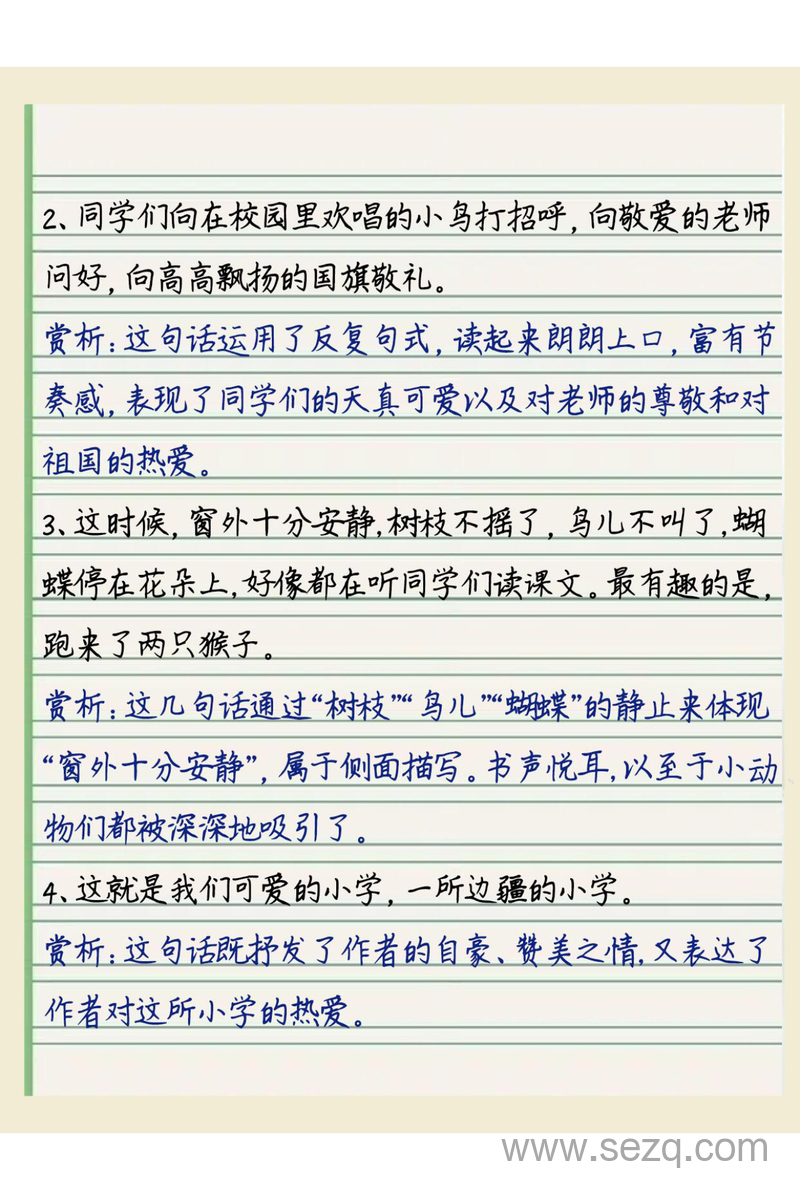 2、同学们向在校园里欢唱的小鸟打招呼，向敬爱的老师
问好，向高高飘扬的国旗敬礼。
赏析：这句话运用了反复句式，读起来朗朗上口，富有节
奏感，表现了同学们的天真可爱以及对老师的尊敬和对
祖国的热爱。
3、这时候，窗外十分安静，树枝不摇了，鸟儿不叫了，蝴
蝶停在花朵上，好像都在听同学们读课文。最有趣的是，
跑来了两只猴子。
赏析：这几句话通过“树枝”“鸟儿”“蝴蝶”的静止来体现
“窗外十分安静”，属于侧面描写。书声悦耳，以至于小动
物们都被深深地吸引了。
4、这就是我们可爱的小学，一所边疆的小学。
赏析：这句话既抒发了作者的自豪、赞美之情，又表达了
作者对这所小学的热爱。
www.sezq.com